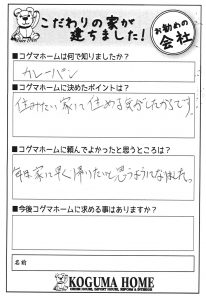 こだわりの家が
建ちました!
お勧めの
会社
■コグマホームは何で知りましたか?
カレーパン
■コグマホームに決めたポイントは?
住みたい家に住める気がしたからです。
■コグマホームに頼んでよかったと思うところは?
毎日家に早く帰りたいと思うようになりました。
■今後コグマホームに求める事はありますか?
名前
KOGUMA HOME
ORDER HOUSE, IMPORT HOUSE, REFORM & EXTERIOR